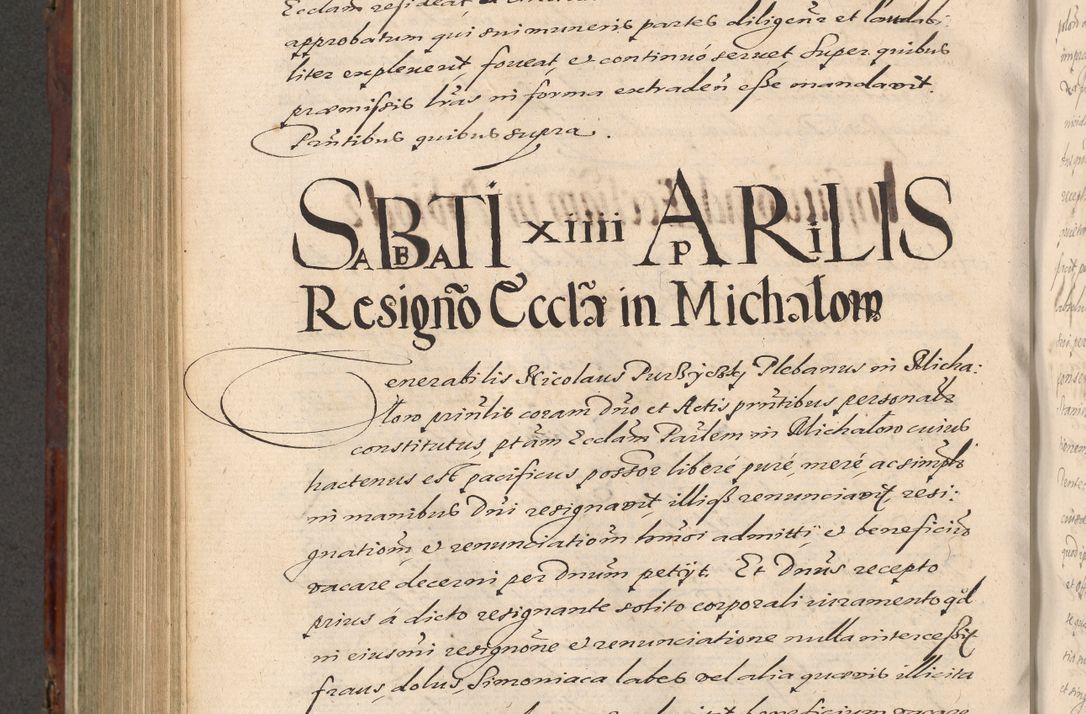 approbatum qui sui muneris partes diligenr et laudabi
liter expleverit, foveat, et continuó servet Super quibus
præmissis lras in forma extraden esse mandavit.
Pntibus quibus supra.
SABBATI XIIII APRILIS
Resigno Eccla in Michalow
Venerabilis Nicolaus Purszyczky Plebanus in Micha:
low prinlis coram Dno et Actis pntibus personalr
constitutus, ptam Ecclam Parlem in Michalow cuius
hactenus est pacificus possor liberé puré, meré, ac simplr
in manibus Dni resignavit, illiqz renunciavit, resi:
gnationm et renunciationm hmoi admitti, et beneficium
vacare decerni per Dnum petiÿt. Et Dnus recepto
prius á dicto resignante solito corporali iuramento qd
in eiusmi resignone et renunciatione nulla intercessit
fraus, dolus, Simoniaca labes vel alia quævis illicita